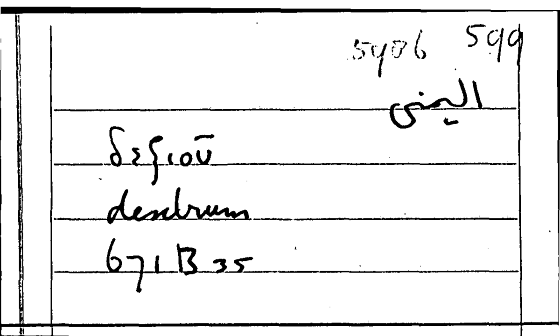 5906 599
اليمنى
δεξιοῦ
dextrum
671 B 35